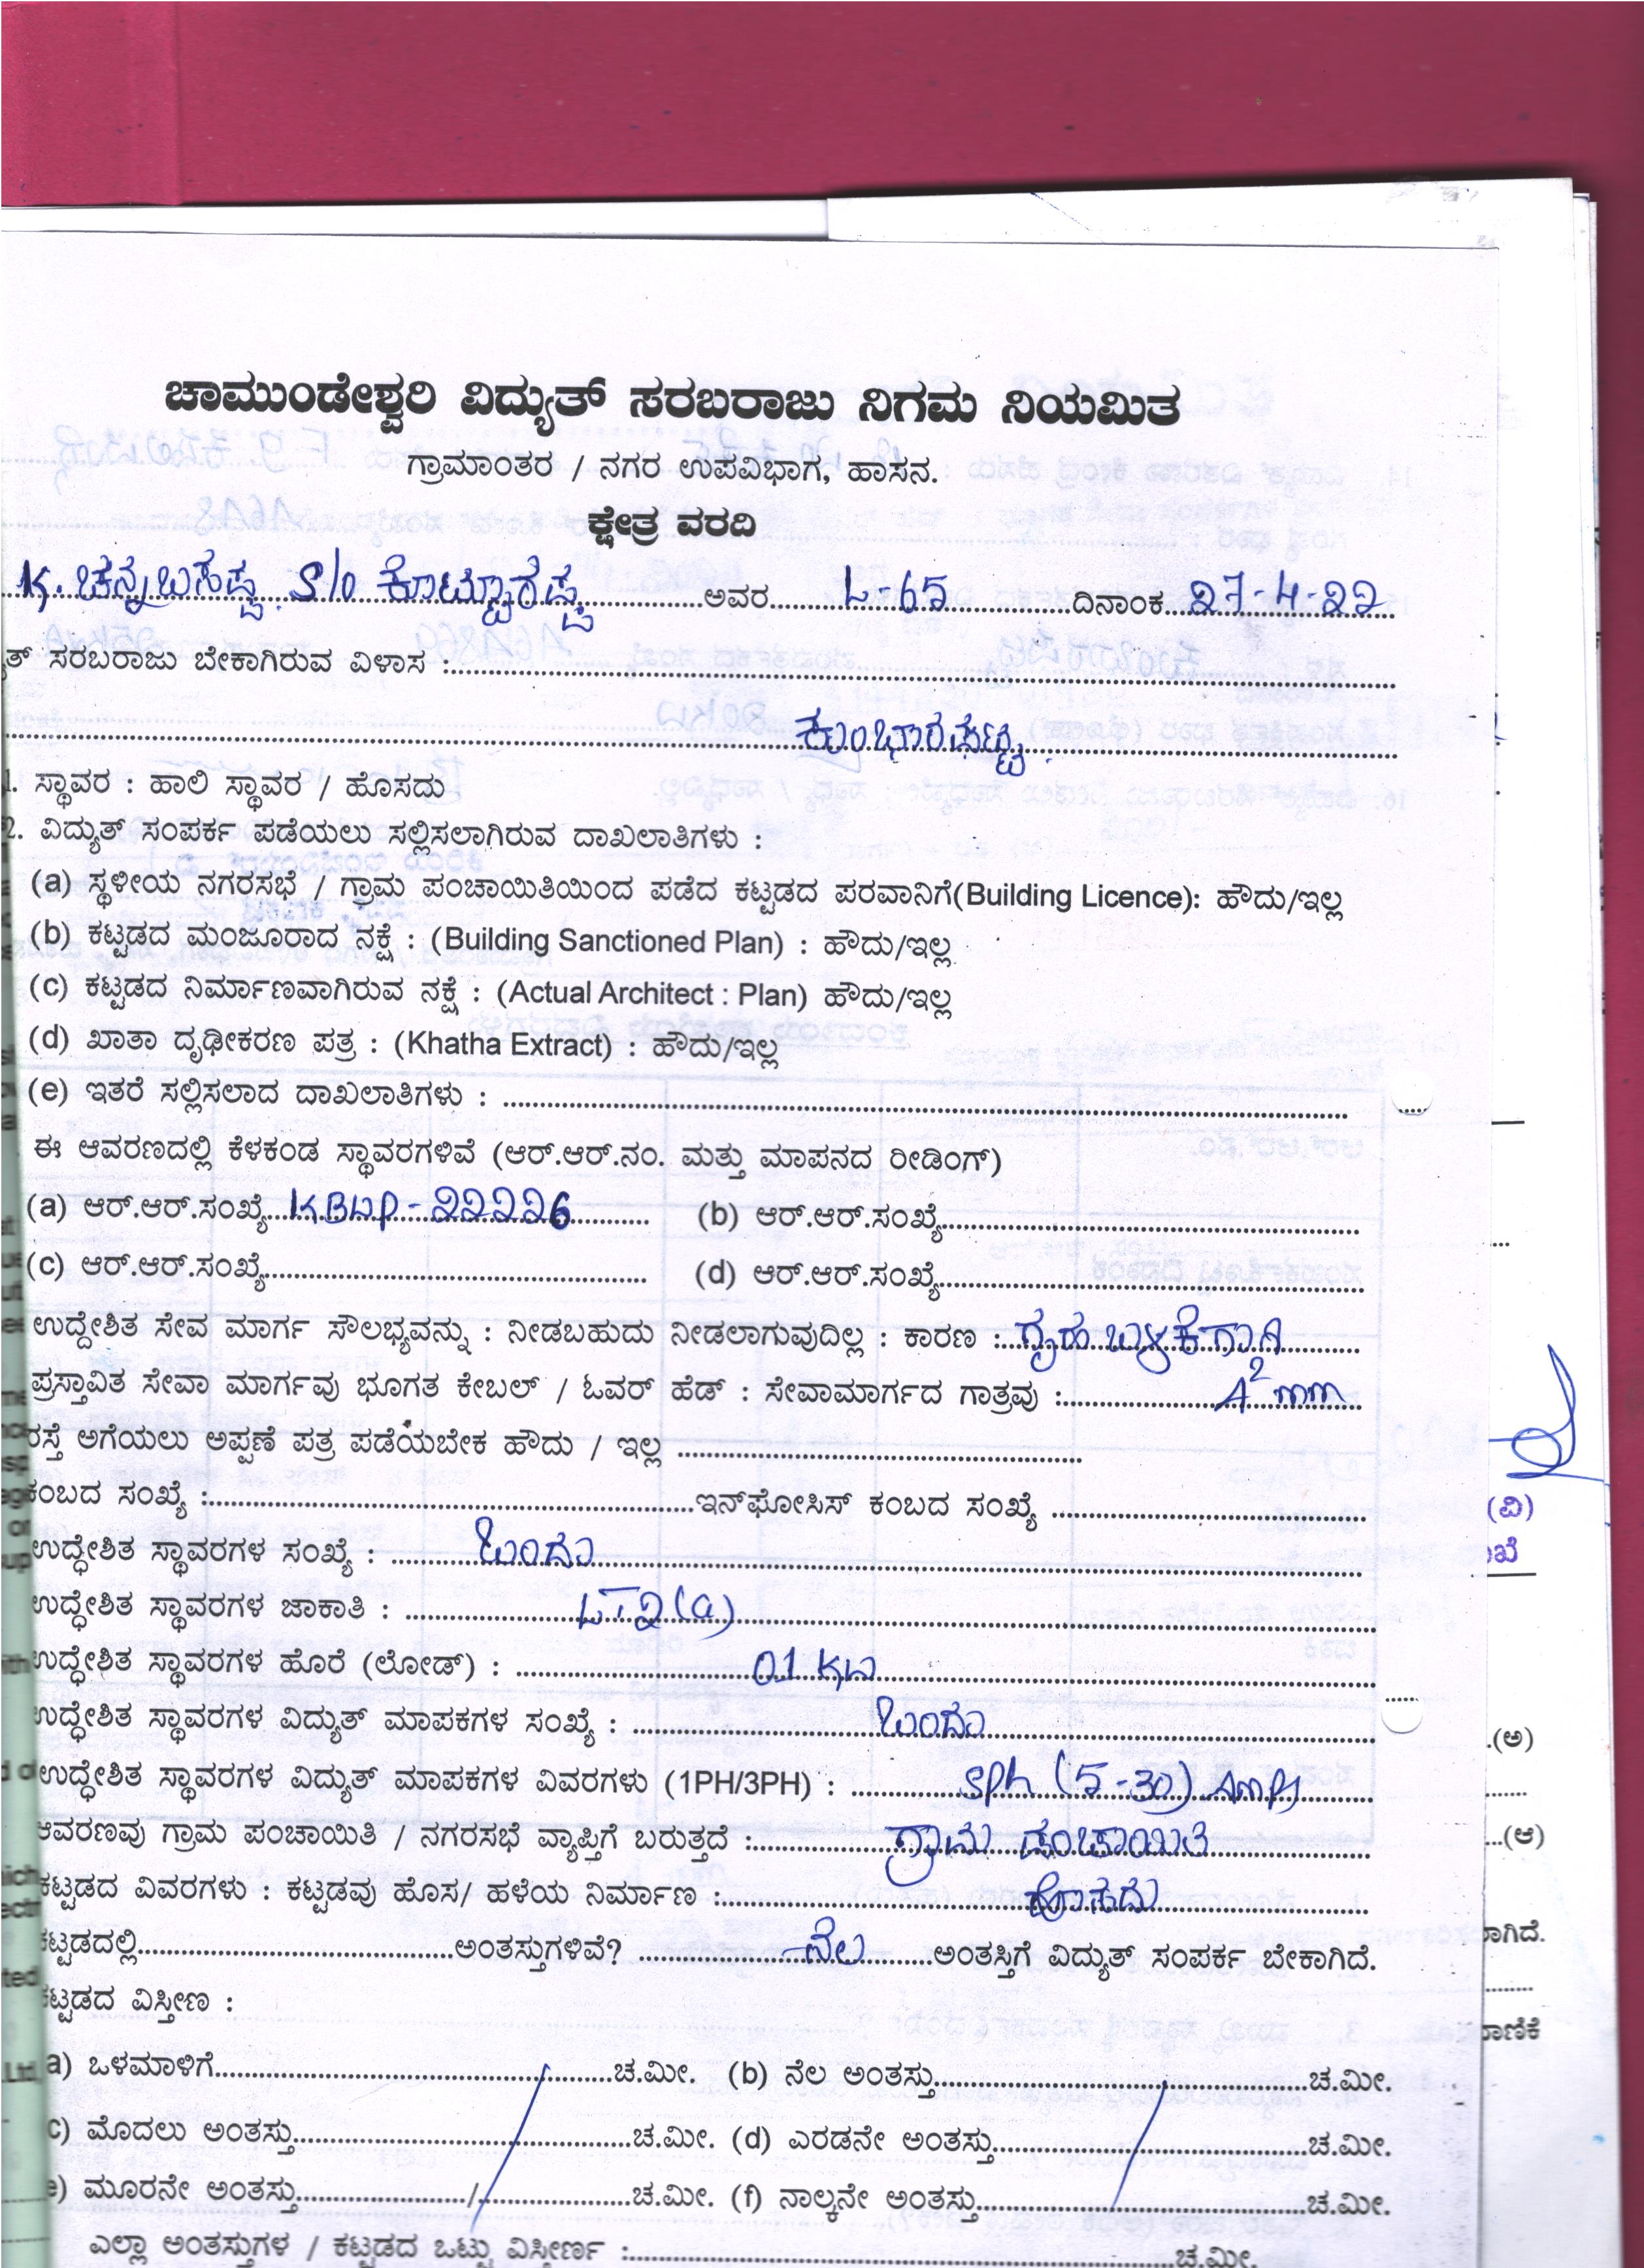 ಚಾಮುಂಡೇಶ್ವರಿ ವಿದ್ಯುತ್ ಸರಬರಾಜು ನಿಗಮ ನಿಯಮಿತ
ಗ್ರಾಮಾಂತರ / ನಗರ ಉಪವಿಭಾಗ, ಹಾಸನ.
ಕ್ಷೇತ್ರ ವರದಿ
K. ಚನ್ನಬಸಪ್ಪ S/o ಕೊಟ್ಟೂರಪ್ಪ ಅವರ L-65 ದಿನಾಂಕ 27-4-22
ತ್ ಸರಬರಾಜು ಬೇಕಾಗಿರುವ ವಿಳಾಸ :
ಕುಂಭಾರಘಟ್ಟ
1. ಸ್ಥಾವರ : ಹಾಲಿ ಸ್ಥಾವರ / ಹೊಸದು
2. ವಿದ್ಯುತ್ ಸಂಪರ್ಕ ಪಡೆಯಲು ಸಲ್ಲಿಸಲಾಗಿರುವ ದಾಖಲಾತಿಗಳು :
(a) ಸ್ಥಳೀಯ ನಗರಸಭೆ / ಗ್ರಾಮ ಪಂಚಾಯಿತಿಯಿಂದ ಪಡೆದ ಕಟ್ಟಡದ ಪರವಾನಿಗೆ(Building Licence): ಹೌದು/ಇಲ್ಲ
(b) ಕಟ್ಟಡದ ಮಂಜೂರಾದ ನಕ್ಷೆ : (Building Sanctioned Plan) : ಹೌದು/ಇಲ್ಲ
(c) ಕಟ್ಟಡದ ನಿರ್ಮಾಣವಾಗಿರುವ ನಕ್ಷೆ : (Actual Architect : Plan) ಹೌದು/ಇಲ್ಲ
(d) ಖಾತಾ ದೃಢೀಕರಣ ಪತ್ರ : (Khatha Extract) : ಹೌದು/ಇಲ್ಲ
(e) ಇತರೆ ಸಲ್ಲಿಸಲಾದ ದಾಖಲಾತಿಗಳು :
ಈ ಆವರಣದಲ್ಲಿ ಕೆಳಕಂಡ ಸ್ಥಾವರಗಳಿವೆ (ಆರ್.ಆರ್.ನಂ. ಮತ್ತು ಮಾಪನದ ರೀಡಿಂಗ್)
(a) ಆರ್.ಆರ್.ಸಂಖ್ಯೆ KBUP-22226 (b) ಆರ್.ಆರ್.ಸಂಖ್ಯೆ
(c) ಆರ್.ಆರ್.ಸಂಖ್ಯೆ (d) ಆರ್.ಆರ್.ಸಂಖ್ಯೆ
ಉದ್ದೇಶಿತ ಸೇವ ಮಾರ್ಗ ಸೌಲಭ್ಯವನ್ನು : ನೀಡಬಹುದು ನೀಡಲಾಗುವುದಿಲ್ಲ : ಕಾರಣ : ಗೃಹ ಬಳಕೆಗಾಗಿ
ಪ್ರಸ್ತಾವಿತ ಸೇವಾ ಮಾರ್ಗವು ಭೂಗತ ಕೇಬಲ್ / ಓವರ್ ಹೆಡ್ : ಸೇವಾಮಾರ್ಗದ ಗಾತ್ರವು : 4² mm
ರಸ್ತೆ ಅಗೆಯಲು ಅಪ್ಪಣೆ ಪತ್ರ ಪಡೆಯಬೇಕ ಹೌದು / ಇಲ್ಲ
ಕಂಬದ ಸಂಖ್ಯೆ : ಇನ್‌ಫೋಸಿಸ್ ಕಂಬದ ಸಂಖ್ಯೆ
(ವಿ)
ಉದ್ಧೇಶಿತ ಸ್ಥಾವರಗಳ ಸಂಖ್ಯೆ : ಒಂದು
ಉದ್ಧೇಶಿತ ಸ್ಥಾವರಗಳ ಜಾಕಾತಿ : LT-2(a)
ಉದ್ಧೇಶಿತ ಸ್ಥಾವರಗಳ ಹೊರೆ (ಲೋಡ್) : 01 KW
ಉದ್ಧೇಶಿತ ಸ್ಥಾವರಗಳ ವಿದ್ಯುತ್ ಮಾಪಕಗಳ ಸಂಖ್ಯೆ : ಒಂದು
(ಅ)
ಉದ್ಧೇಶಿತ ಸ್ಥಾವರಗಳ ವಿದ್ಯುತ್ ಮಾಪಕಗಳ ವಿವರಗಳು (1PH/3PH) : SPh (5-30) Amps
ಆವರಣವು ಗ್ರಾಮ ಪಂಚಾಯಿತಿ / ನಗರಸಭೆ ವ್ಯಾಪ್ತಿಗೆ ಬರುತ್ತದೆ : ಗ್ರಾಮ ಪಂಚಾಯಿತಿ
(ಆ)
ಕಟ್ಟಡದ ವಿವರಗಳು : ಕಟ್ಟಡವು ಹೊಸ/ ಹಳೆಯ ನಿರ್ಮಾಣ : ಹೊಸದು
ಕಟ್ಟಡದಲ್ಲಿ ಅಂತಸ್ತುಗಳಿವೆ? ನೆಲ ಅಂತಸ್ತಿಗೆ ವಿದ್ಯುತ್ ಸಂಪರ್ಕ ಬೇಕಾಗಿದೆ.
ಕಟ್ಟಡದ ವಿಸ್ತೀಣ :
a) ಒಳಮಾಳಿಗೆ ಚ.ಮೀ. (b) ನೆಲ ಅಂತಸ್ತು ಚ.ಮೀ.
c) ಮೊದಲು ಅಂತಸ್ತು ಚ.ಮೀ. (d) ಎರಡನೇ ಅಂತಸ್ತು ಚ.ಮೀ.
e) ಮೂರನೇ ಅಂತಸ್ತು ಚ.ಮೀ. (f) ನಾಲ್ಕನೇ ಅಂತಸ್ತು ಚ.ಮೀ.
ಎಲ್ಲಾ ಅಂತಸ್ತುಗಳ / ಕಟ್ಟಡದ ಒಟ್ಟು ವಿಸ್ತೀರ್ಣ : ಚ.ಮೀ.